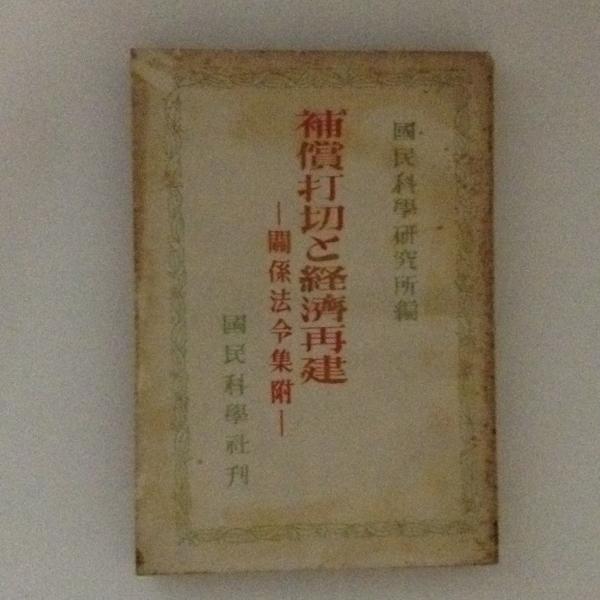 國民科學研究所編
補償打切と経濟再建
―關係法令集附―
國民科學社刊